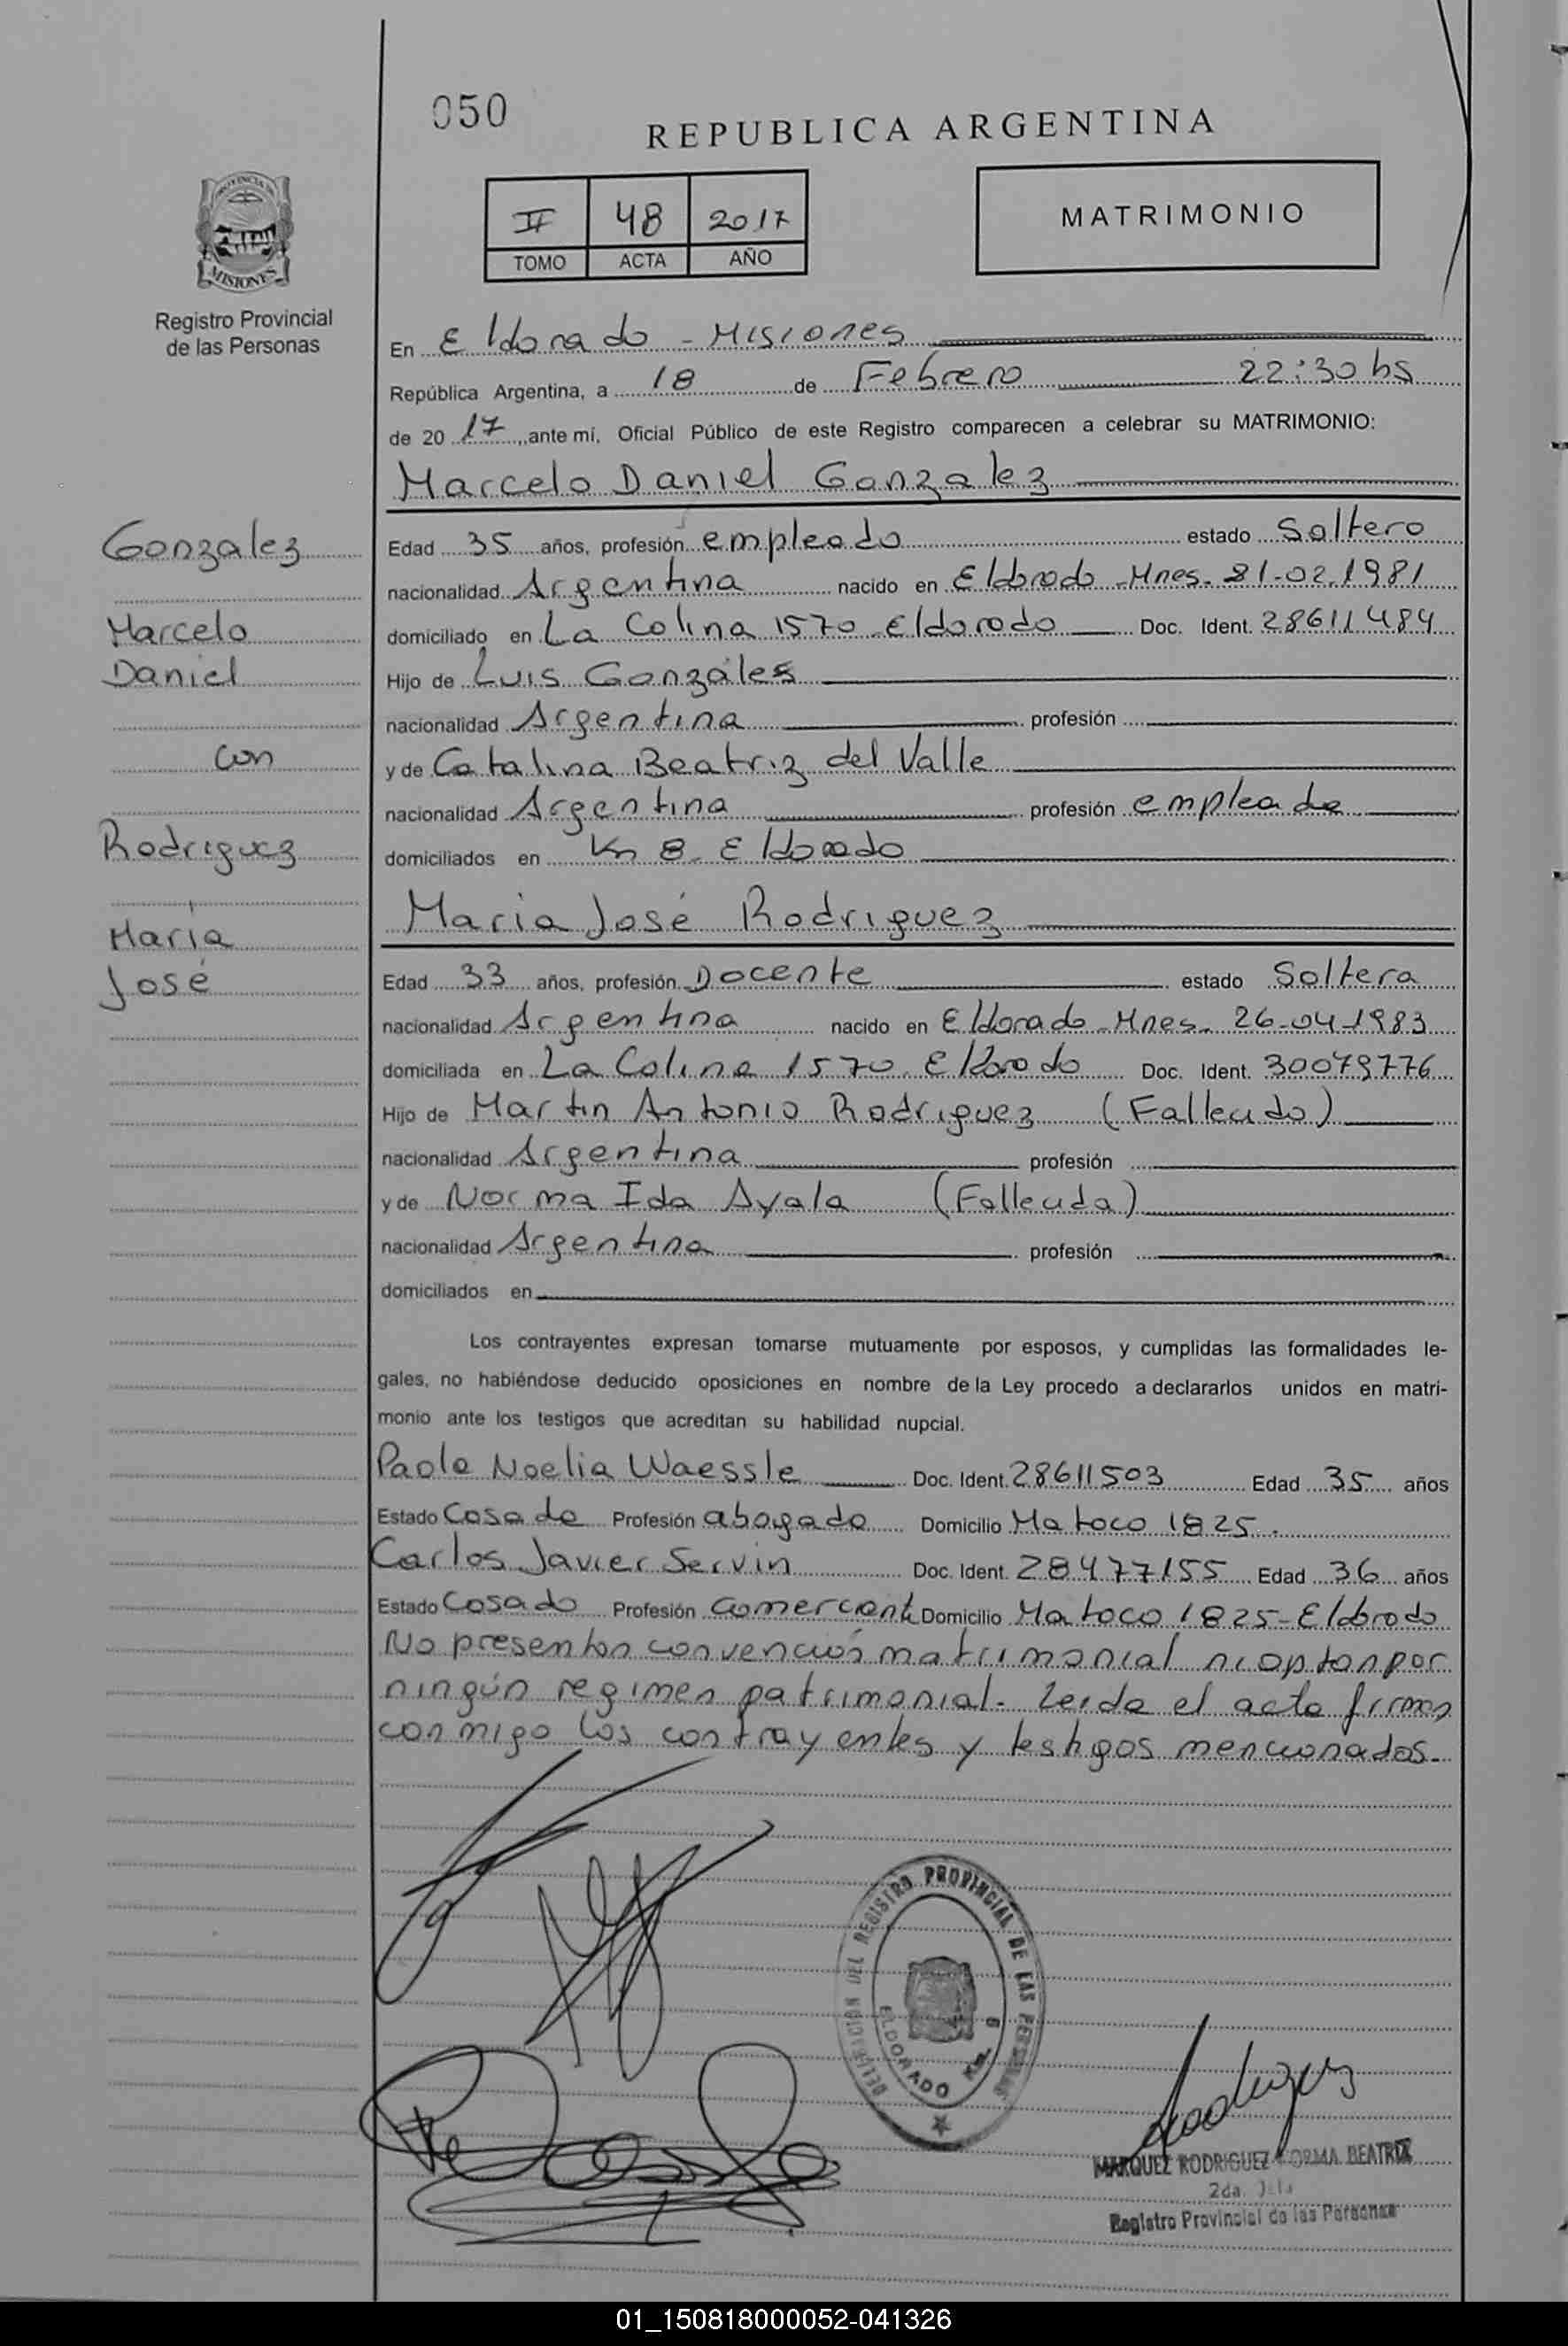 050
REPUBLICA ARGENTINA
II 48 2017
TOMO ACTA AÑO
MATRIMONIO
PROVINCIA DE
MISIONES
Registro Provincial
de las Personas
En Eldorado - Misiones
República Argentina, a 18 de Febrero 22:30 hs
de 20 17 ante mí, Oficial Público de este Registro comparecen a celebrar su MATRIMONIO:
Marcelo Daniel Gonzalez
Gonzalez
Marcelo
Daniel
con
Rodriguez
María
José
Edad 35 años, profesión empleado estado Soltero
nacionalidad Argentina nacido en Eldorado - Mnes - 21-02-1981
domiciliado en La Colina 1570 Eldorado Doc. Ident. 28611484
Hijo de Luis Gonzáles
nacionalidad Argentina profesión
y de Catalina Beatriz del Valle
nacionalidad Argentina profesión empleada
domiciliados en Km 8 - Eldorado
María José Rodriguez
Edad 33 años, profesión Docente estado Soltera
nacionalidad Argentina nacido en Eldorado - Mnes - 26-04-1983
domiciliada en La Colina 1570 Eldorado Doc. Ident. 30079776
Hijo de Martin Antonio Rodriguez (Fallecido)
nacionalidad Argentina profesión
y de Norma Ida Ayala (Fallecida)
nacionalidad Argentina profesión
domiciliados en
Los contrayentes expresan tomarse mutuamente por esposos, y cumplidas las formalidades le-
gales, no habiéndose deducido oposiciones en nombre de la Ley procedo a declararlos unidos en matri-
monio ante los testigos que acreditan su habilidad nupcial.
Paola Noelia Waessle Doc. Ident. 28611503 Edad 35 años
Estado Casada Profesión abogada Domicilio Matoco 1825.
Carlos Javier Servin Doc. Ident. 28477155 Edad 36 años
Estado Casado Profesión Comerciante Domicilio Matoco 1825 - Eldorado
No presentan convención matrimonial ni optan por
ningún regimen patrimonial. Leida el acta firman
conmigo los contrayentes y testigos mencionados.
DELEGACION DEL REGISTRO PROVINCIAL DE LAS PERSONAS
ELDORADO KM. 8
Rodriguez
MARQUEZ RODRIGUEZ NORMA BEATRIZ
2da. Jefa
Registro Provincial de las Personas
01_150818000052-041326